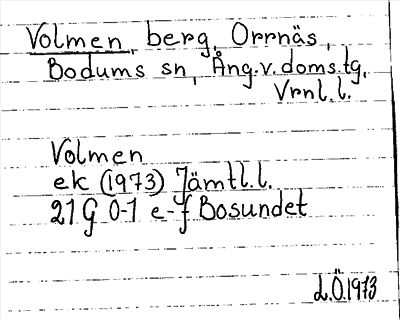 Volmen, berg, Orrnäs,
Bodums sn, Ång.v.doms.tg.
Vrnl.l.
Volmen
ek (1973) Jämtl.l.
21 G 0-1 e-f Bosundet
L.Ö.1973